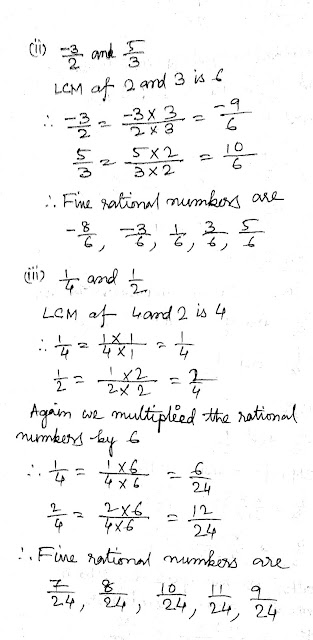 (ii) -3/2 and 5/3
LCM of 2 and 3 is 6
∴ -3/2 = -3×3/2×3 = -9/6
5/3 = 5×2/3×2 = 10/6
∴ Five rational numbers are
-8/6, -3/6, 1/6, 3/6, 5/6
(iii) 1/4 and 1/2
LCM of 4 and 2 is 4
∴ 1/4 = 1×1/4×1 = 1/4
1/2 = 1×2/2×2 = 2/4
Again we multiplied the rational
numbers by 6
∴ 1/4 = 1×6/4×6 = 6/24
2/4 = 2×6/4×6 = 12/24
∴ Five rational numbers are
7/24, 8/24, 10/24, 11/24, 9/24